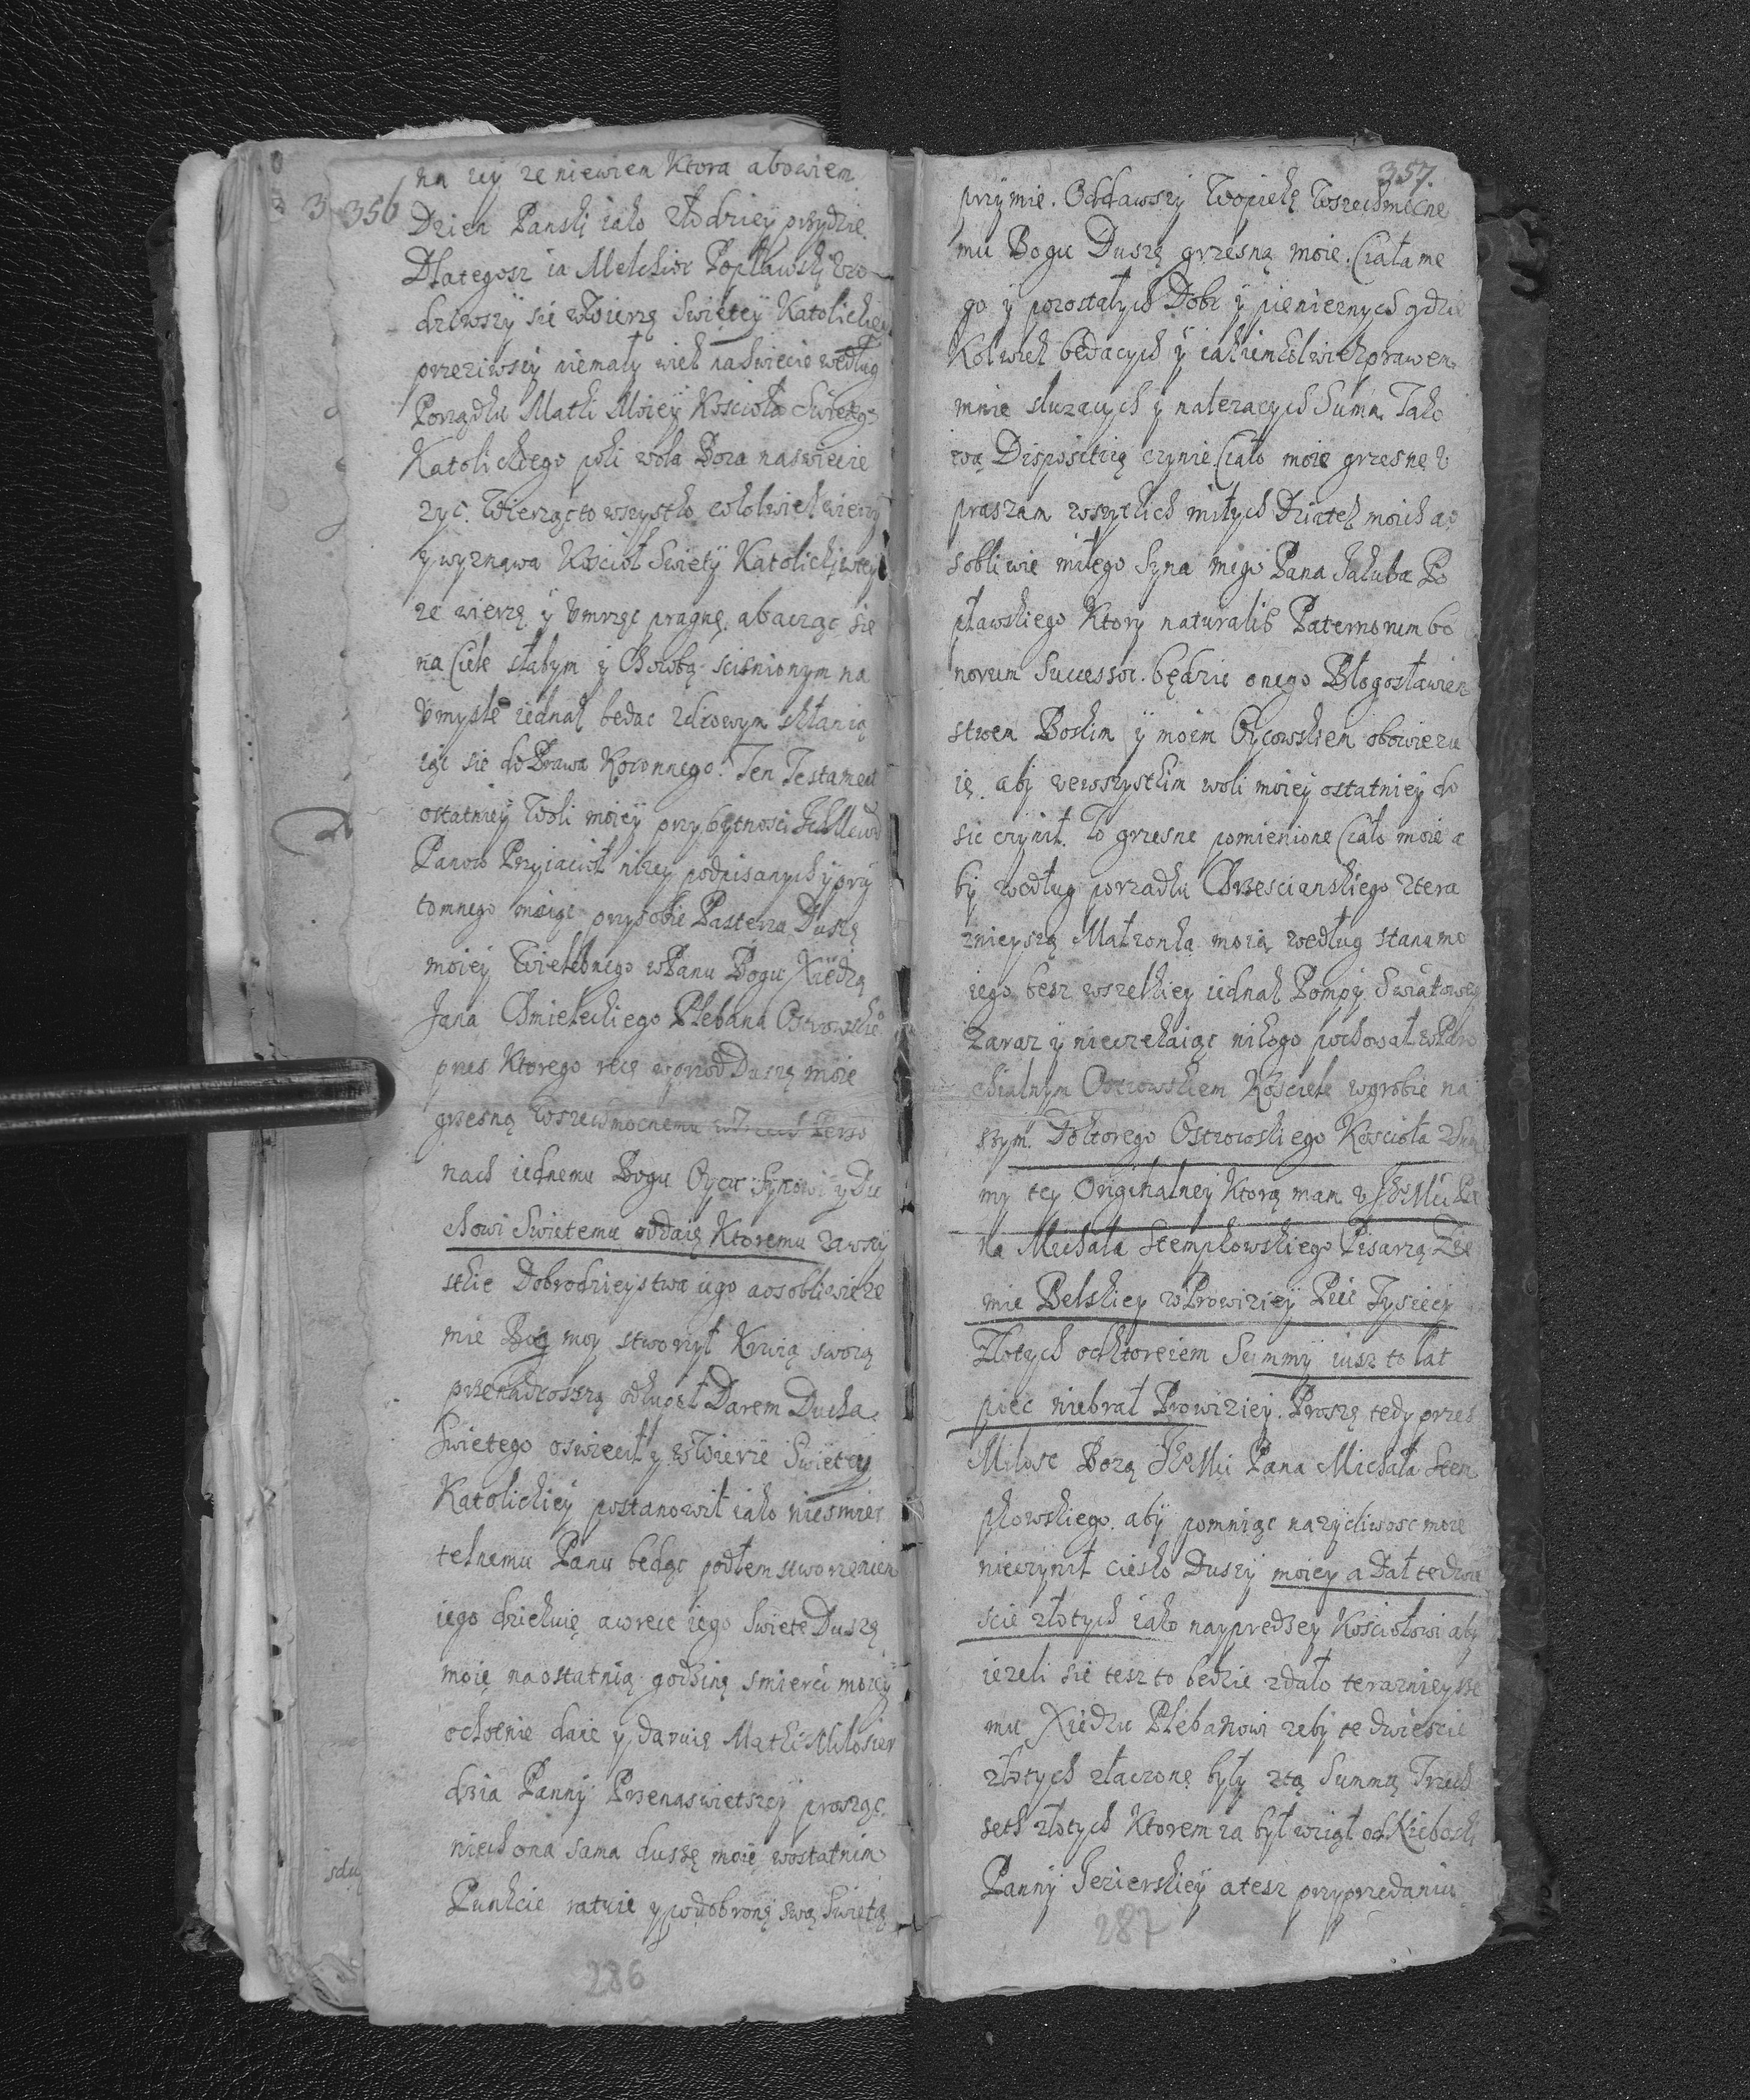 356
na iey ze niewien Ktora abowiem
Dzien Panski iako złodziey przydzie.
Dlategosz ia Melchior Popławski Vro
dziwszy sie wWierzę Swietey Katolickiey
przeziwszy niemały wiek naswiecie według
Porządku Matki Moiey Koscioła Swietego
Katolickiego poki wola Boza naswiecie
zyc. Wierząc to wszystko cokolwiek wierzy
y wyznawa Koscioł Swiety Katolicki wtey
ze wierzę y Vmrzec pragnę. abacząc się
na Ciele słabym y Chorobą scisnionym na
Vmysle iednak bedac zdrowym skłania
iąc sie do Prawa Koronnego. Ten Testament
ostatniey Woli moiey przybytnosci
Panow Przyiacioł nizey podpisanych y przy
tomnego maiąc przysobie Pasterza Duszę
moiey Wielebnego wPanu Bogu Xiędza
Jana Chmieleckiego Plebana Ostrowskie
przes Ktorego ręcę wprzod Duszę moie
grzesną Wszechmocnemu wTrzech Perso
nach iednemu Bogu Oycu Synowi y Du
chowi Swietemu oddaię Ktoremu zawszy
stkie Dobrodzieystwa iego aosobliwie ze
mie Bog moy stworzył Krwią swoią
przenadroszszą odkupił Darem Ducha
Swietego oswiecił y wWierze Swietey
Katolickiey postanowił iako niesmier
telnemu Panu bedąc podłem stworzeniem
iego dziekuię awrece iego Swiete Duszę
moię naostatnią godzinę smierci moiey
ochotnie daie y daruię Matki Miłosier
dzia Panny Przenaswietszey prosząc
niech ona sama duszę moię wostatnim
Punkcie ratuie y podobronę swą Swietą
286
357.
przymie. Oddawszy Wopiekę Wszechmocne
mu Bogu Duszę grzesną moie. Ciała me
go y pozostałych Dobr y pieniernych gdzie
Kolwiek bedacych y iakiemkolwiek prawem
mnie słuzących y nalezących Summ. Tako
wą Dispositią czynie. Ciało moie grzesne V
praszam wszytkich miłych Dziatek moich ao
sobliwie miłego Syna mego Pana Jakuba Po
pławskiego Ktory naturalis Paternorum bo
norum Successor. będzie onego Błogosławien
stwem Boskim y moim Oycowskiem obowiezu
ię. aby wewszystkim woli moiey ostatniey do
sic czynił. To grzesne pomienione Ciało moie a
by według porzadku Chrzescianskiego ztera
znieyszą Małzonką moią według stanu mo
iego besz wszelkiey iednak Pompy Swiatowey
Zaraz y nieczekaiąc nikogo pochował wParo
chialnym Ostrowskiem Kosciele wgrobie na
szym. Doktorego Ostrowskiego Koscioła zSum
my tey Originalney Ktorą mam v
na Michała Stempkowskiego Pisarzą Zie
mie Belskiey wProwiziey Pieć Tysiecy
Złotych odktoreiem Summy iusz to lat
piec niebrał Prowiziey. Proszę tedy przes
Miłosc Bozą Pana Michała Stem
pkowskiego. aby pomniąc nazycliwosc moie
nieczynił ciesko Duszy moiey a Dał te dwie
scie złotych iako nayprędzey Kosciołowi aby
iezeli sie tesz to bedzie zdało teraznieysze
mu Xiedzu Plebanowi zeby te dwiescie
złotych złaczonę były ztą Summą Trzech
seth złotych Ktorem ia był wziął od Nieboski
Panny Jezierskiey atesz przyprzedaniu
287